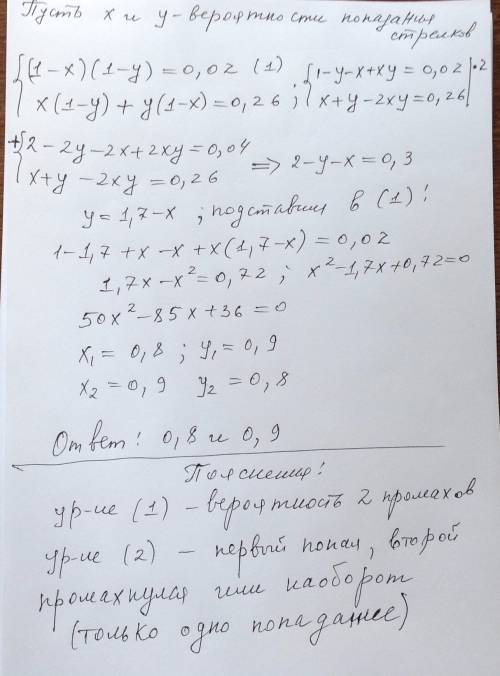 Пусть x и y - вероятности попадания
стрелков
{(1-x)(1-y)=0,02 (1) ; {1-y-x+xy=0,02 |·2
{x(1-y)+y(1-x)=0,26 ; {x+y-2xy=0,26
+{2-2y-2x+2xy=0,04
{x+y-2xy=0,26 ⇒ 2-y-x=0,3
y=1,7-x ; подставим в (1)!
1-1,7+x-x+x(1,7-x)=0,02
1,7x-x²=0,72 ; x²-1,7x+0,72=0
50x²-85x+36=0
x₁=0,8 ; y₁=0,9
x₂=0,9 y₂=0,8
Ответ: 0,8 и 0,9
Пояснения:
ур-ие (1) - вероятность 2 промахов
ур-ие (2) - первый попал, второй
промахнулся или наоборот
(только одно попадание)